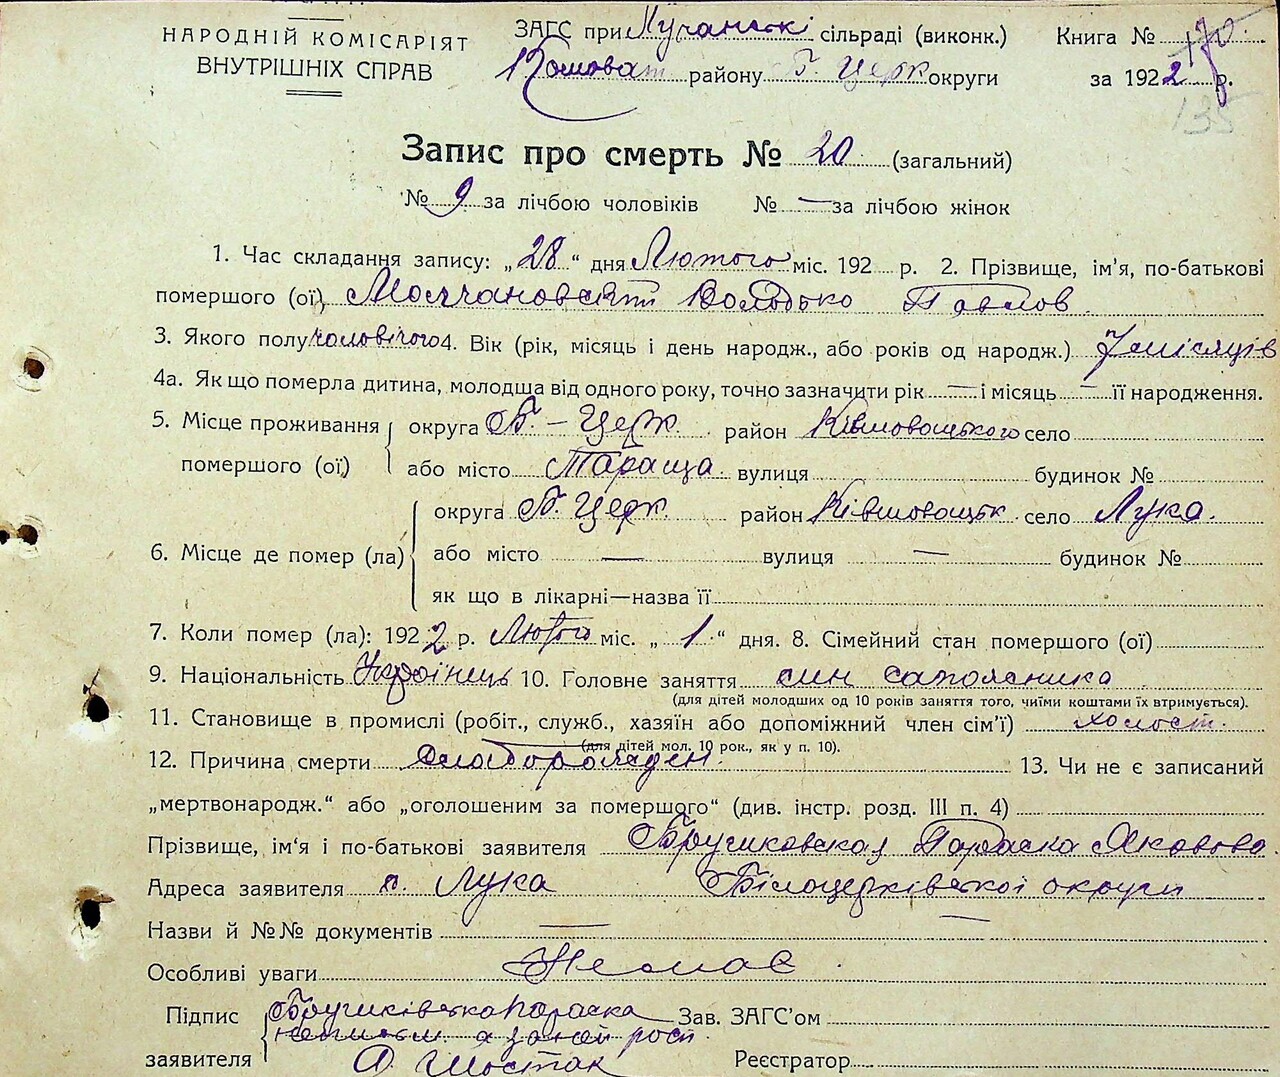 НАРОДНІЙ КОМІСАРІЯТ
ВНУТРІШНІХ СПРАВ
ЗАГС при Лучанські сільраді (виконк.) Книга №
Кошоват району Б. Церк округи за 1922 р.
170
135
Запис про смерть № 20 (загальний)
№ 9 за лічбою чоловіків № — за лічбою жінок
1. Час складання запису: „28“ дня Лютого міс. 192 р. 2. Прізвище, ім'я, по-батькові
помершого (ої) Молчановский Володько Павлов
3. Якого полу чоловічого 4. Вік (рік, місяць і день народж., або років од народж.) 7 місяців
4а. Як що померла дитина, молодша від одного року, точно зазначити рік — і місяць — її народження.
5. Місце проживання помершого (ої) округа Б.-Церк. район Ківшовацького село
або місто Тараща вулиця будинок №
6. Місце де помер (ла) округа Б. Церк. район Ківшовацьк село Лука.
або місто — вулиця — будинок №
як що в лікарні—назва її
7. Коли помер (ла): 1922 р. Лютого міс. „1“ дня. 8. Сімейний стан помершого (ої)
9. Національність Українець 10. Головне заняття син
(для дітей молодших од 10 років заняття того, чиїми коштами їх втримується).
11. Становище в промислі (робіт., служб., хазяїн або допоміжний член сім'ї) холост.
(для дітей мол. 10 рок., як у п. 10).
12. Причина смерти 13. Чи не є записаний
„мертвонародж.“ або „оголошеним за помершого“ (див. інстр. розд. III п. 4)
Прізвище, ім'я і по-батькові заявителя Параска Яковово
Адреса заявителя с. Лука Білоцерківської округи
Назви й №№ документів — —
Особливі уваги Немає
Підпис заявителя Параска Зав. ЗАГС'ом
неписьм. а за неї рост
Шостак Реєстратор